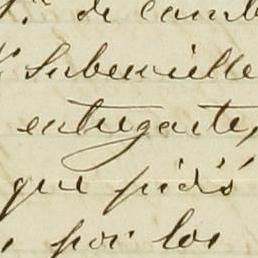 de camb
Suberville
entregarte,
que pidió
, por los